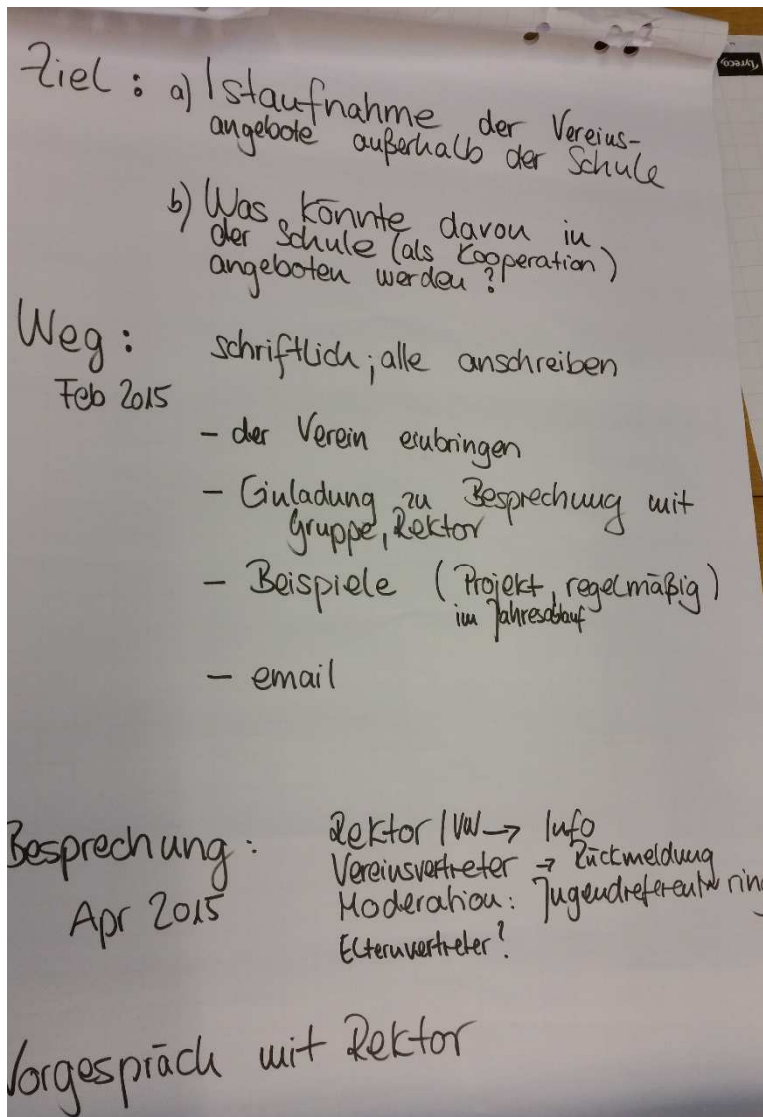 Ziel: a) Istaufnahme der Vereins-
angebote außerhalb der Schule
b) Was könnte davon in
der Schule (als Kooperation)
angeboten werden?
Weg: schriftlich; alle anschreiben
Feb 2015
- der Verein
- Einladung zu Besprechung mit
Gruppe, Rektor
- Beispiele (Projekt, regelmäßig)
im Jahresablauf
- email
Besprechung: Rektor / VW → Info
Apr 2015
Vereinsvertreter → Rückmeldung
Moderation: Jugendreferent ring
Elternvertreter?
Vorgespräch mit Rektor
Lyreco